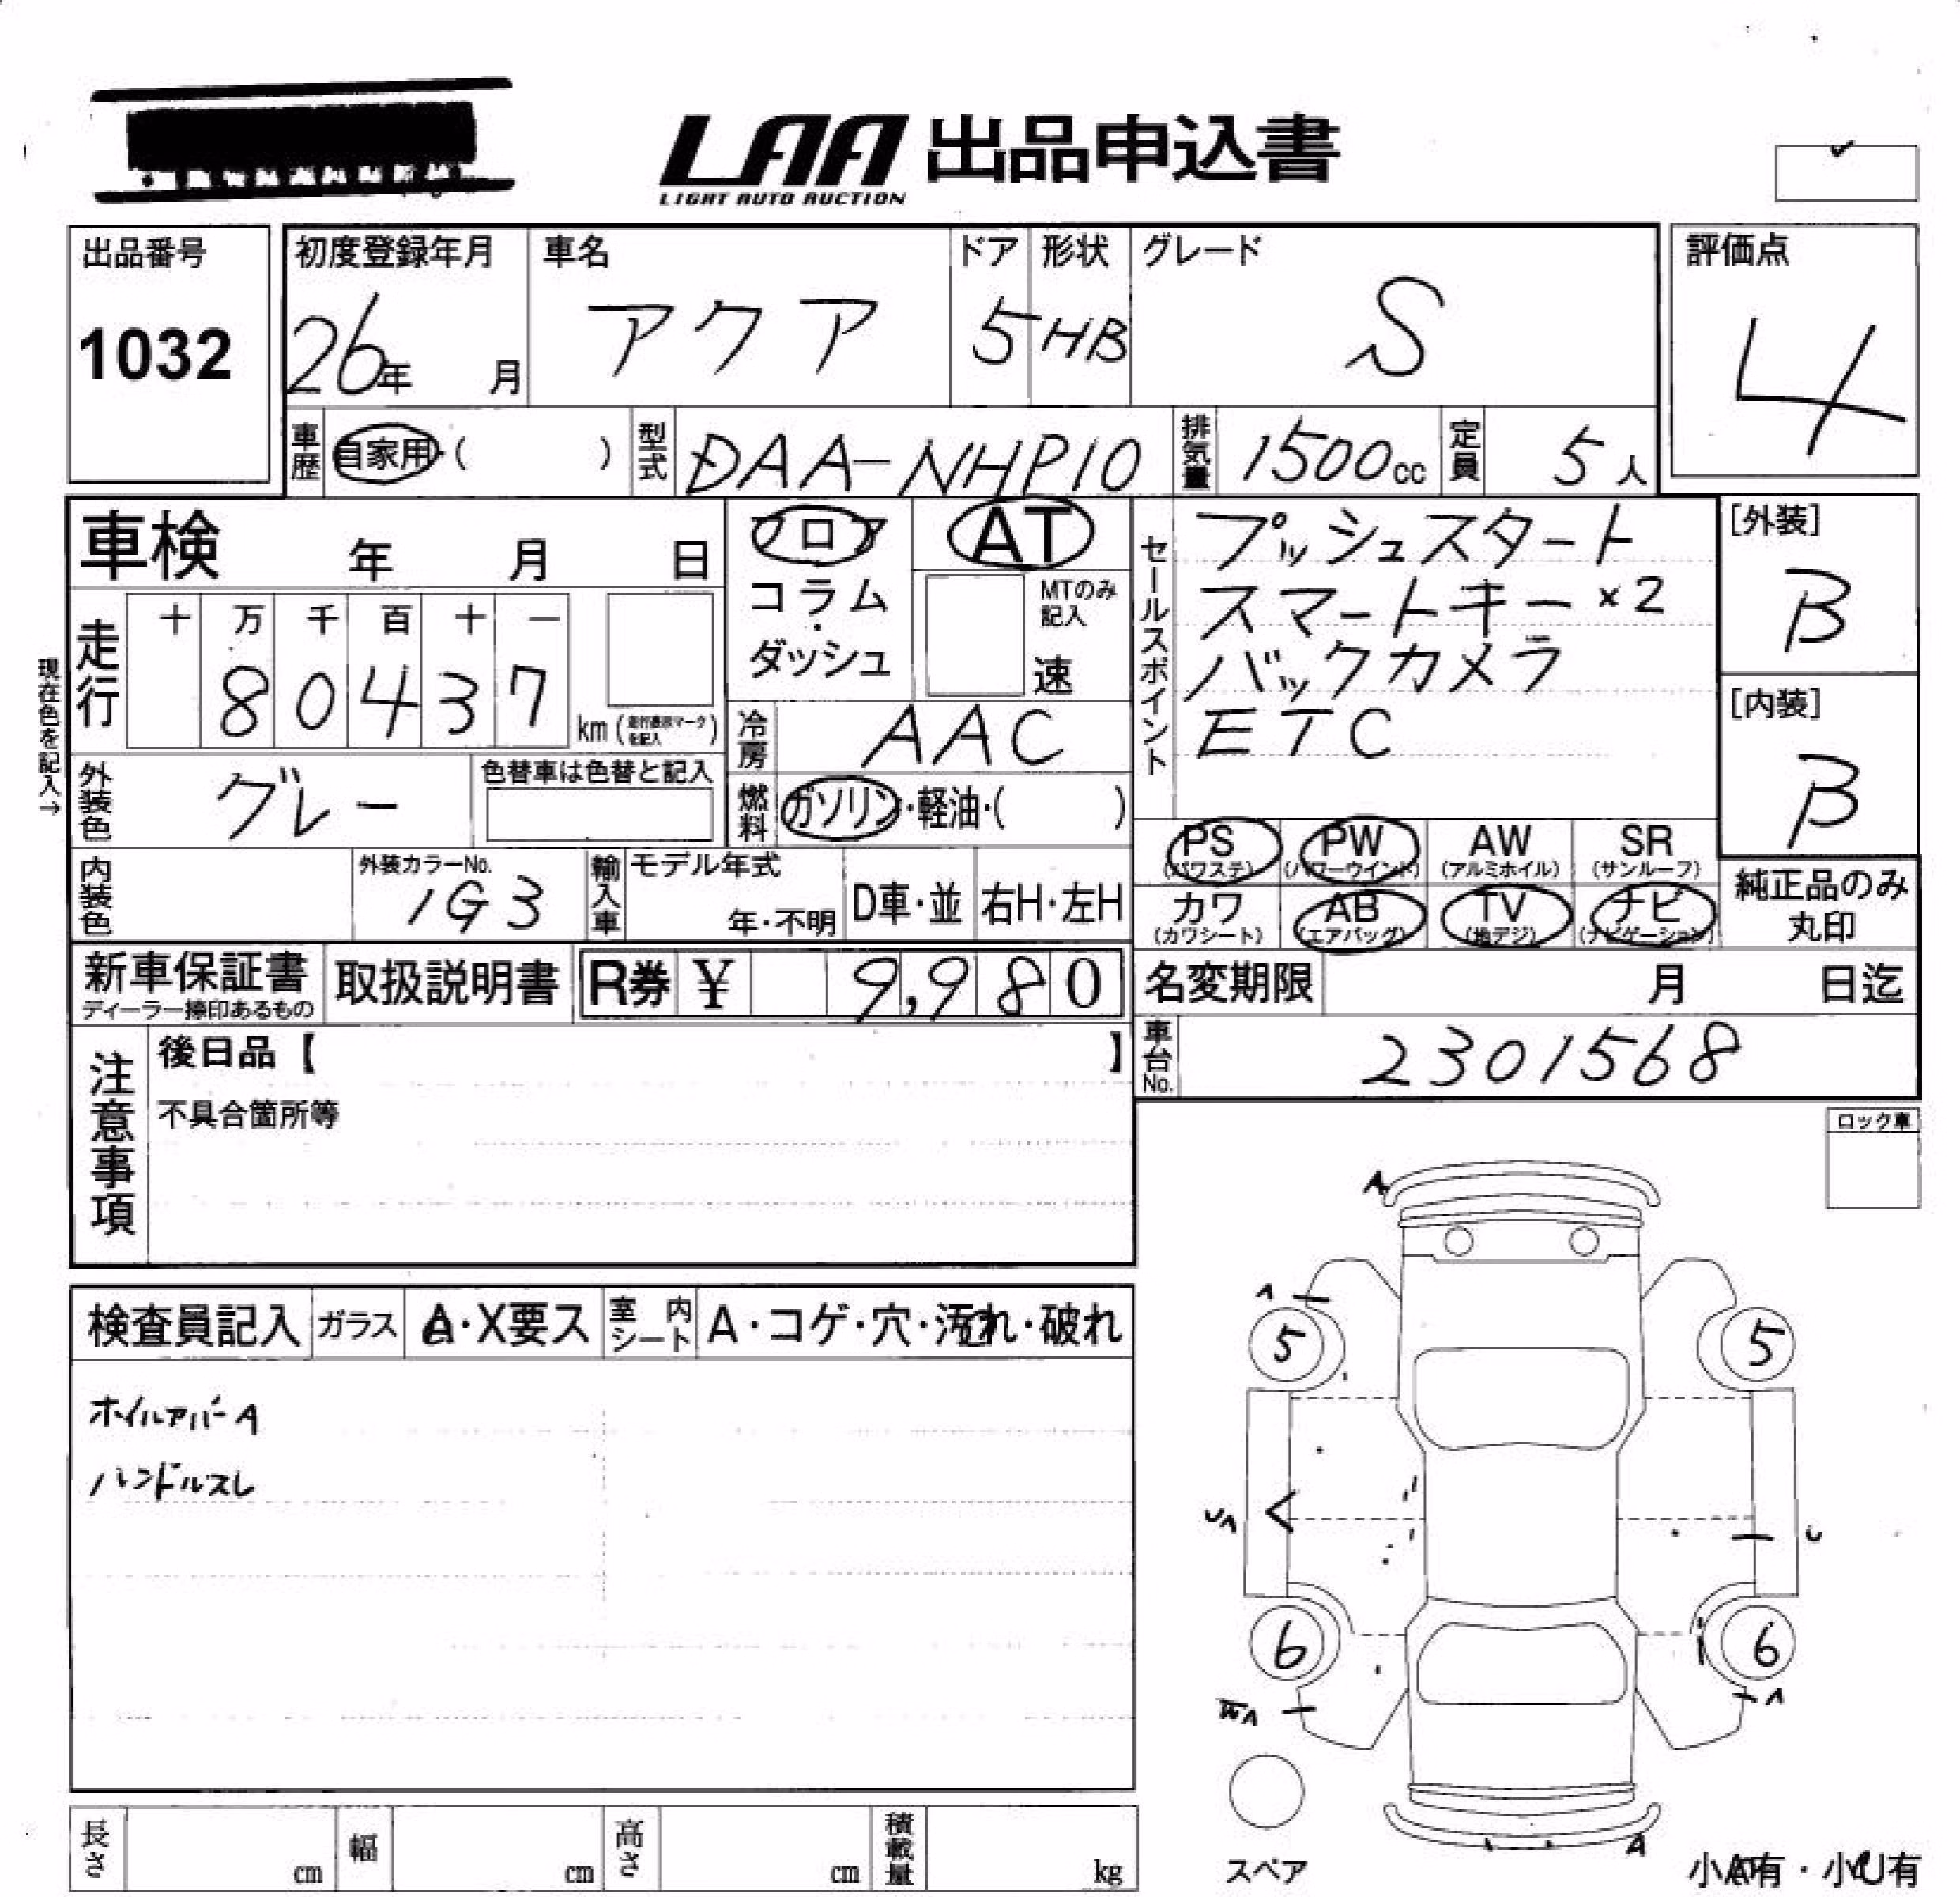 LAA 出品申込書
LIGHT AUTO AUCTION
出品番号
1032
初度登録年月
26年 月
車名
アクア
ドア
5
形状
HB
グレード
S
評価点
4
車歴
自家用・( )
型式
DAA-NHP10
排気量
1500cc
定員
5人
車検 年 月 日
フロア
コラム・
ダッシュ
AT
MTのみ
記入
速
セールスポイント
プッシュスタート
スマートキー×2
バックカメラ
ETC
[外装]
B
[内装]
B
現在色を記入→
走行
十 万 千 百 十 一
8 0 4 3 7
km(走行表示マークを記入)
冷房
AAC
外装色
グレー
色替車は色替と記入
燃料
ガソリン・軽油・( )
PS PW AW SR
(パワステ) (パワーウインド) (アルミホイル) (サンルーフ)
カワ AB TV ナビ
(カワシート) (エアバッグ) (地デジ) (ナビゲーション)
純正品のみ
丸印
内装色
外装カラーNo.
1G3
輸入車
モデル年式
年・不明
D車・並
右H・左H
新車保証書
ディーラー捺印あるもの
取扱説明書
R券 ¥ 9,980
名変期限 月 日迄
車台No.
2301568
注意事項
後日品【 】
不具合箇所等
ロック車
検査員記入
ガラス
A・X要ス
室内シート
A・コゲ・穴・汚れ・破れ
ホイルカバーA
ハンドルスレ
A
A
5
5
UA
U
6
6
A
A
スペア
小A有・小U有
長さ cm
幅 cm
高さ cm
積載量 kg